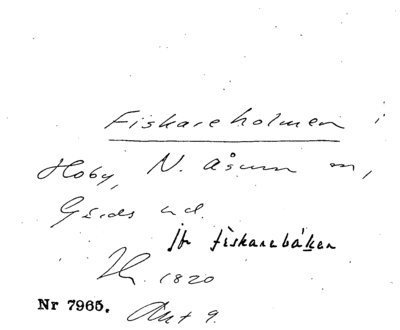 Fiskareholmen i
Hoby, N. Åsum sn,
Gärds hd.
jfr fiskarebäcken
1820
Nr 7965. Akt 9.